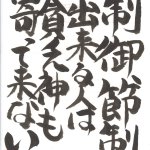 制御節制
出来る人は
貧乏神も
寄って来ない